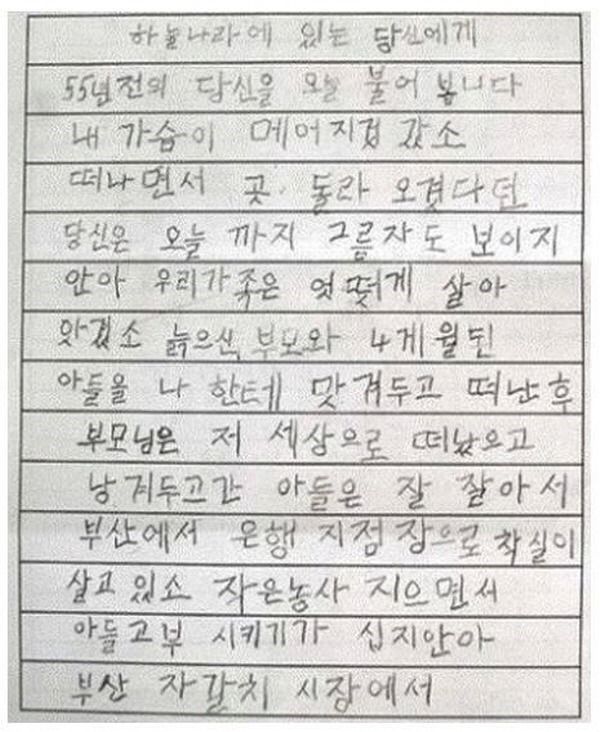 하늘나라에 있는 당신에게
55년전의 당신을 오늘 불어 봅니다
내 가슴이 메어지겁 갔소
떠나면서 곳 돌라 오겠다던
당신은 오늘 까지 그름자도 보이지
안아 우리가족은 엇떻게 살아
앗겠소 늙으신 부모와 4게월된
아들을 나 한테 맛겨두고 떠난후
부모님은 저 세상으로 떠났으고
낭겨두고간 아들은 잘 잘아서
부산에서 은행 지점장으로 착실이
살고 있소 작은농사 지으면서
아들고부 시키기가 십지안아
부산 자갈치 시장에서